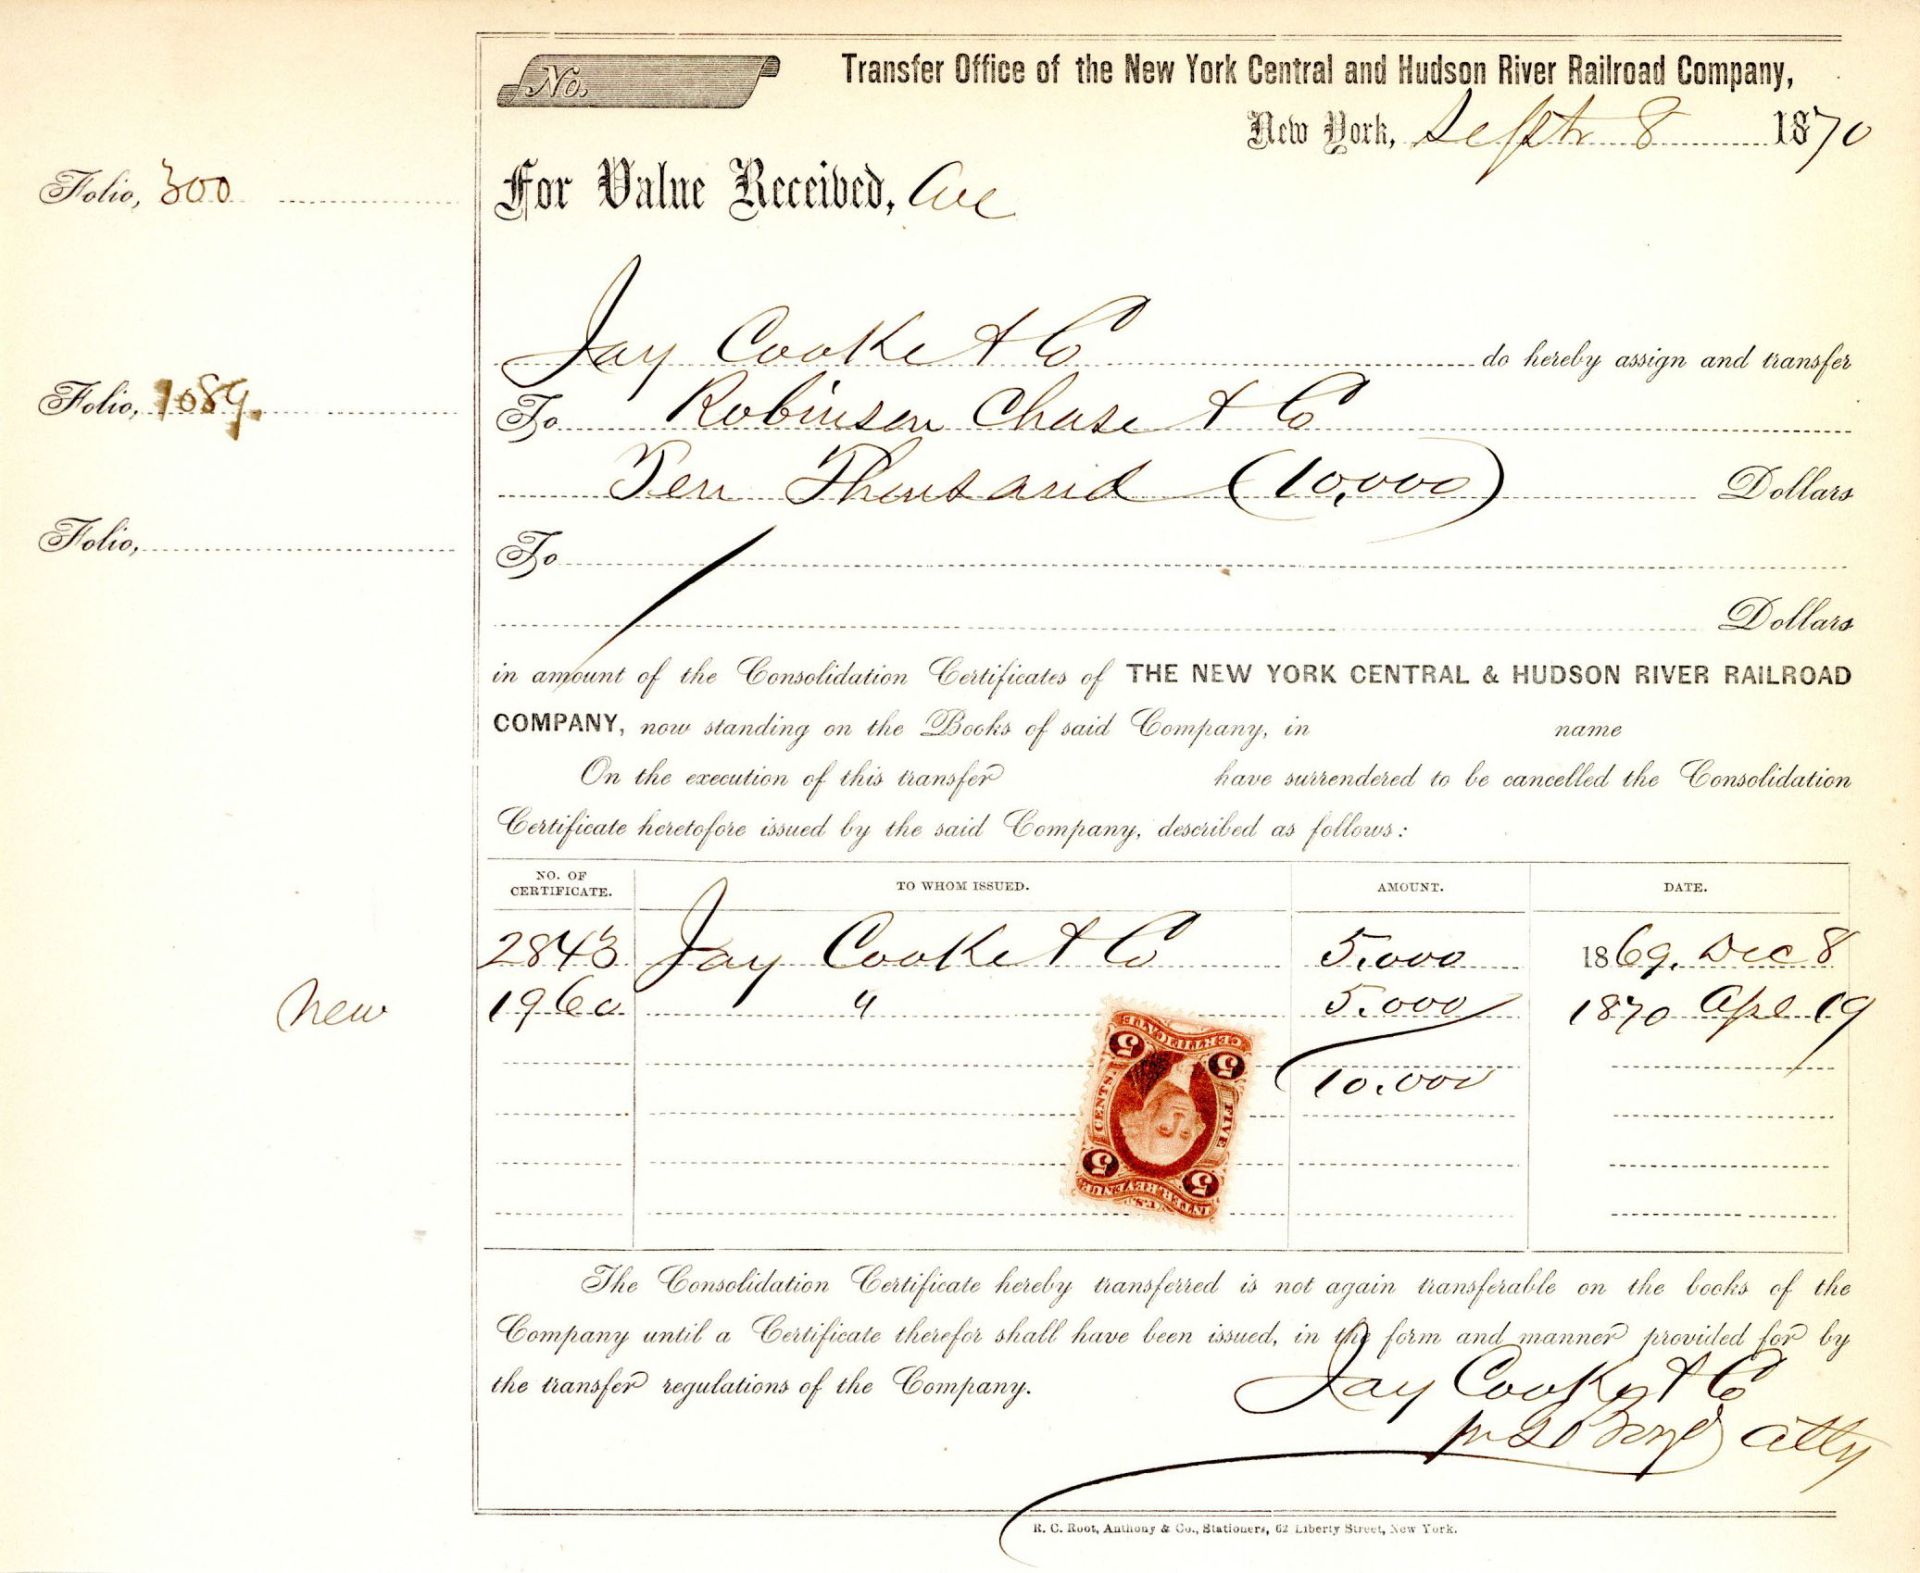 No.
Transfer Office of the New York Central and Hudson River Railroad Company,
New York, Septr 8 1870
Folio, 300
For Value Received, We
Jay Cooke & Co do hereby assign and transfer
Folio, 1089.
To Robinson Chase & Co
Ten Thousand (10,000) Dollars
Folio,
To
Dollars
in amount of the Consolidation Certificates of THE NEW YORK CENTRAL & HUDSON RIVER RAILROAD
COMPANY, now standing on the Books of said Company, in name
On the execution of this transfer have surrendered to be cancelled the Consolidation
Certificate heretofore issued by the said Company, described as follows:
NO. OF CERTIFICATE. TO WHOM ISSUED. AMOUNT. DATE.
2843 Jay Cooke & Co 5.000 1869. Dec 8
New 1960 " 5.000 1870 Apl 19
10.000
CERTIFICATE
5 5
CENTS. FIVE
5 5
U.S. INTER. REVENUE
The Consolidation Certificate hereby transferred is not again transferable on the books of the
Company until a Certificate therefor shall have been issued, in the form and manner provided for by
the transfer regulations of the Company.
Jay Cooke & Co
Atty
R. C. Root, Anthony & Co., Stationers, 62 Liberty Street, New York.